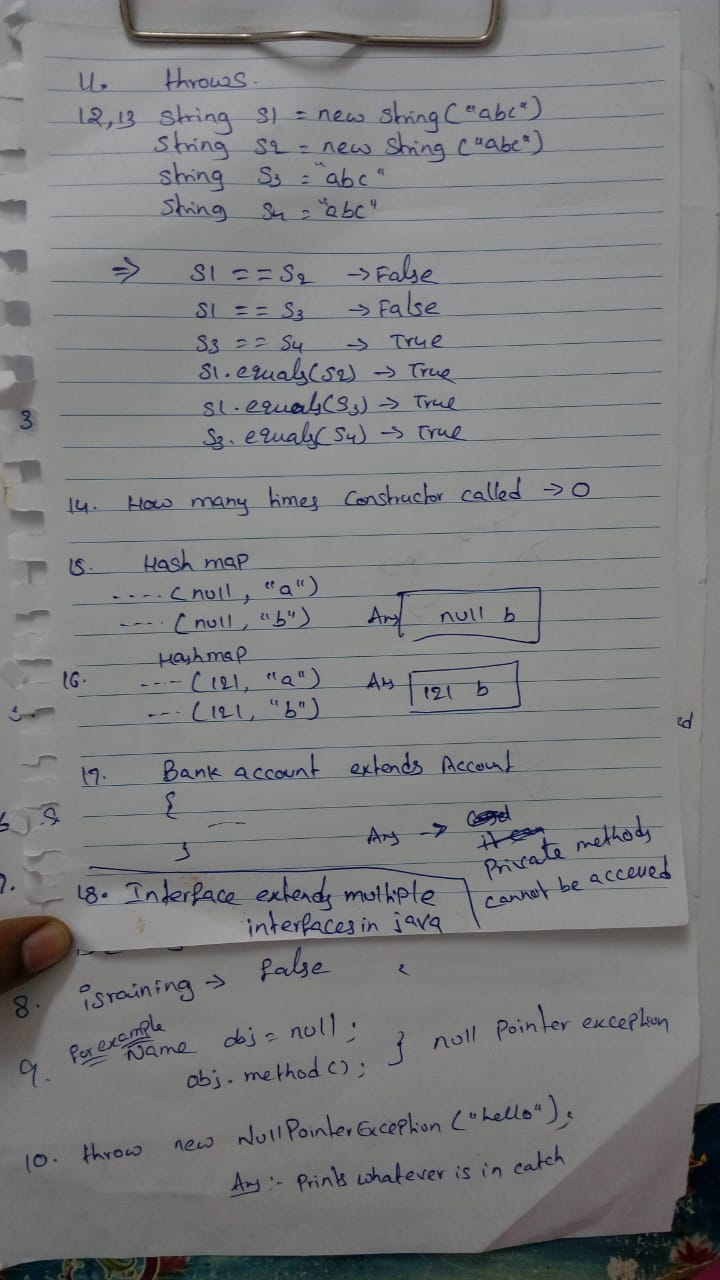 11. throws.
12,13 string s1 = new string ("abc")
String s2 = new string ("abc")
string S3 = "abc"
String S4 = "abc"
⇒ S1 == S2 → False
S1 == S3 → False
S3 == S4 → True
S1.equals(S2) → True
S1.equals(S3) → True
S3.equals(S4) → True
3
14. How many times Constructor called → 0
15. Hash map
....(null, "a")
....(null, "b") Ans null b
Hashmap
16. ....(121, "a") Ans 121 b
....(121, "b")
ed
17. Bank account extends Account
{
}
Ans → Private methods
cannot be accessed
18. Interface extends multiple
interfaces in java
8. israining → false
9. For example Name obj = null;
obj.method(); } null pointer exception
10. throw new NullPointerException ("hello");
Ans :- Prints whatever is in catch